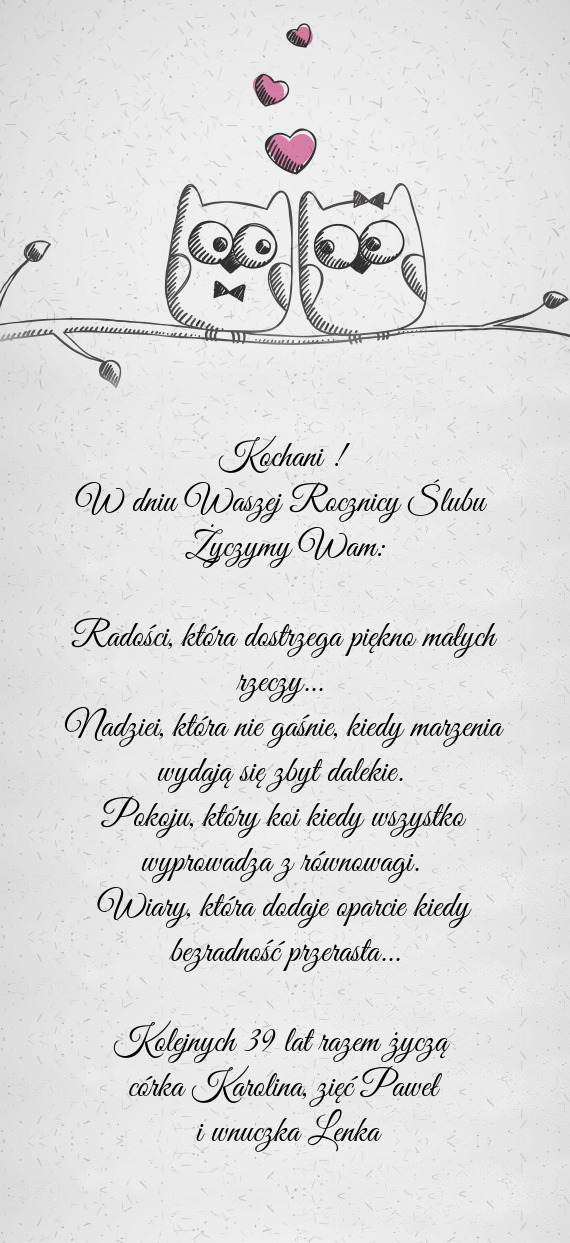 Kochani !
W dniu Waszej Rocznicy Ślubu
Życzymy Wam:
Radości, która dostrzega piękno małych
rzeczy...
Nadziei, która nie gaśnie, kiedy marzenia
wydają się zbyt dalekie.
Pokoju, który koi kiedy wszystko
wyprowadza z równowagi.
Wiary, która dodaje oparcie kiedy
bezradność przerasta...
Kolejnych 39 lat razem życzą
córka Karolina, zięć Paweł
i wnuczka Lenka